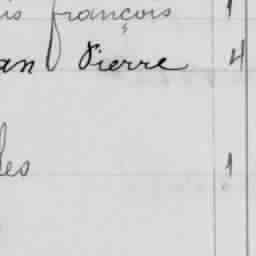 is françois 1
an Pierre 4
les 1